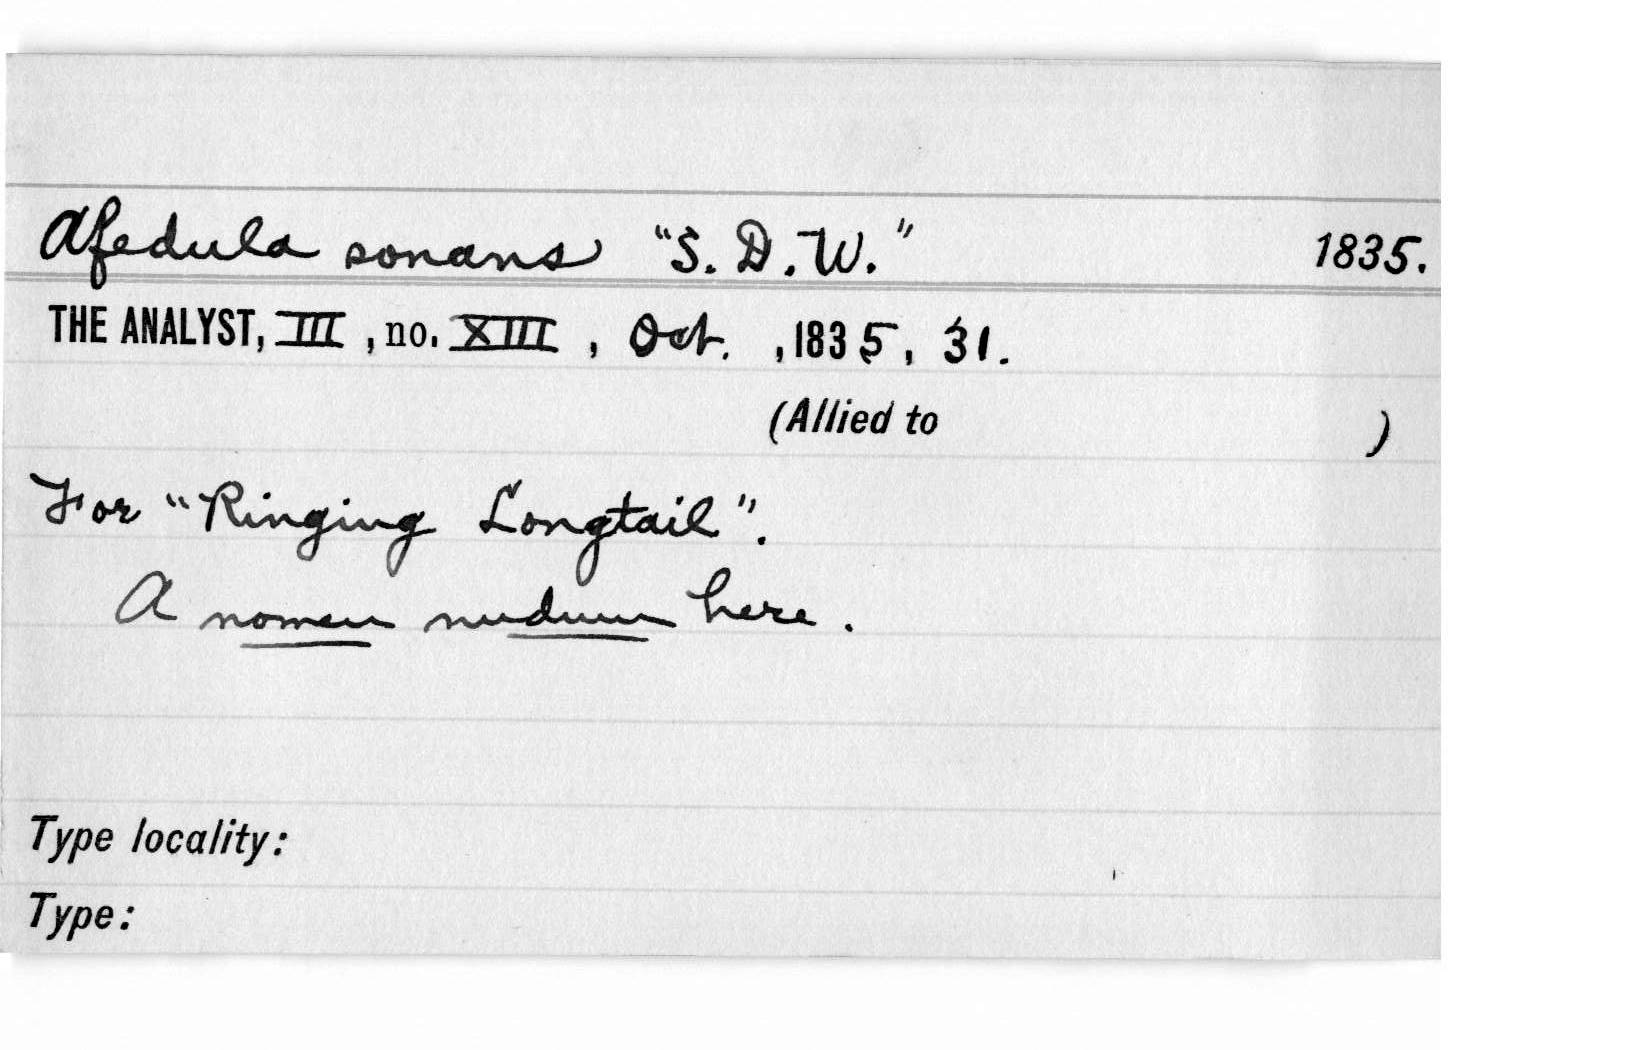 Afedula sonans "S. D. W." 1835.
THE ANALYST, III, no. XIII, Oct. , 1835, 31.
(Allied to )
For "Ringing Longtail".
A nomen nudum here.
Type locality:
Type: